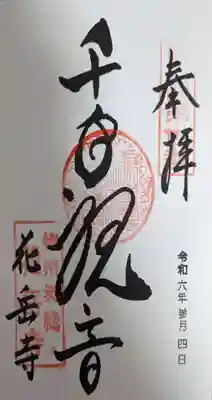 奉拝
令和六年参月四日
千手観音
花岳寺